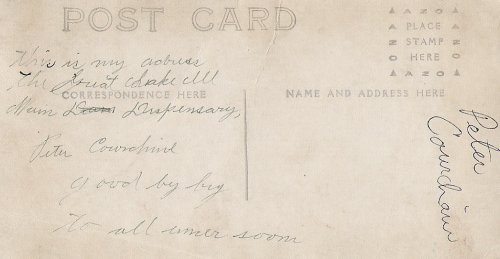 POST CARD
AZO
PLACE
STAMP
HERE
AZO
This is my adress
the Great Lake Ill
CORRESPONDENCE HERE
NAME AND ADDRESS HERE
Main Dispensary,
Peter
good by big
to all
soom
Peter